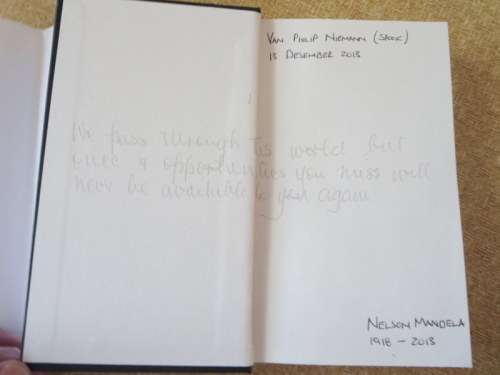 VAN PHILIP NIEMANN (SPOOK)
15 DESEMBER 2013
We pass through this world but
once & opportunities you miss will
never be available to you again
NELSON MANDELA
1918 - 2013